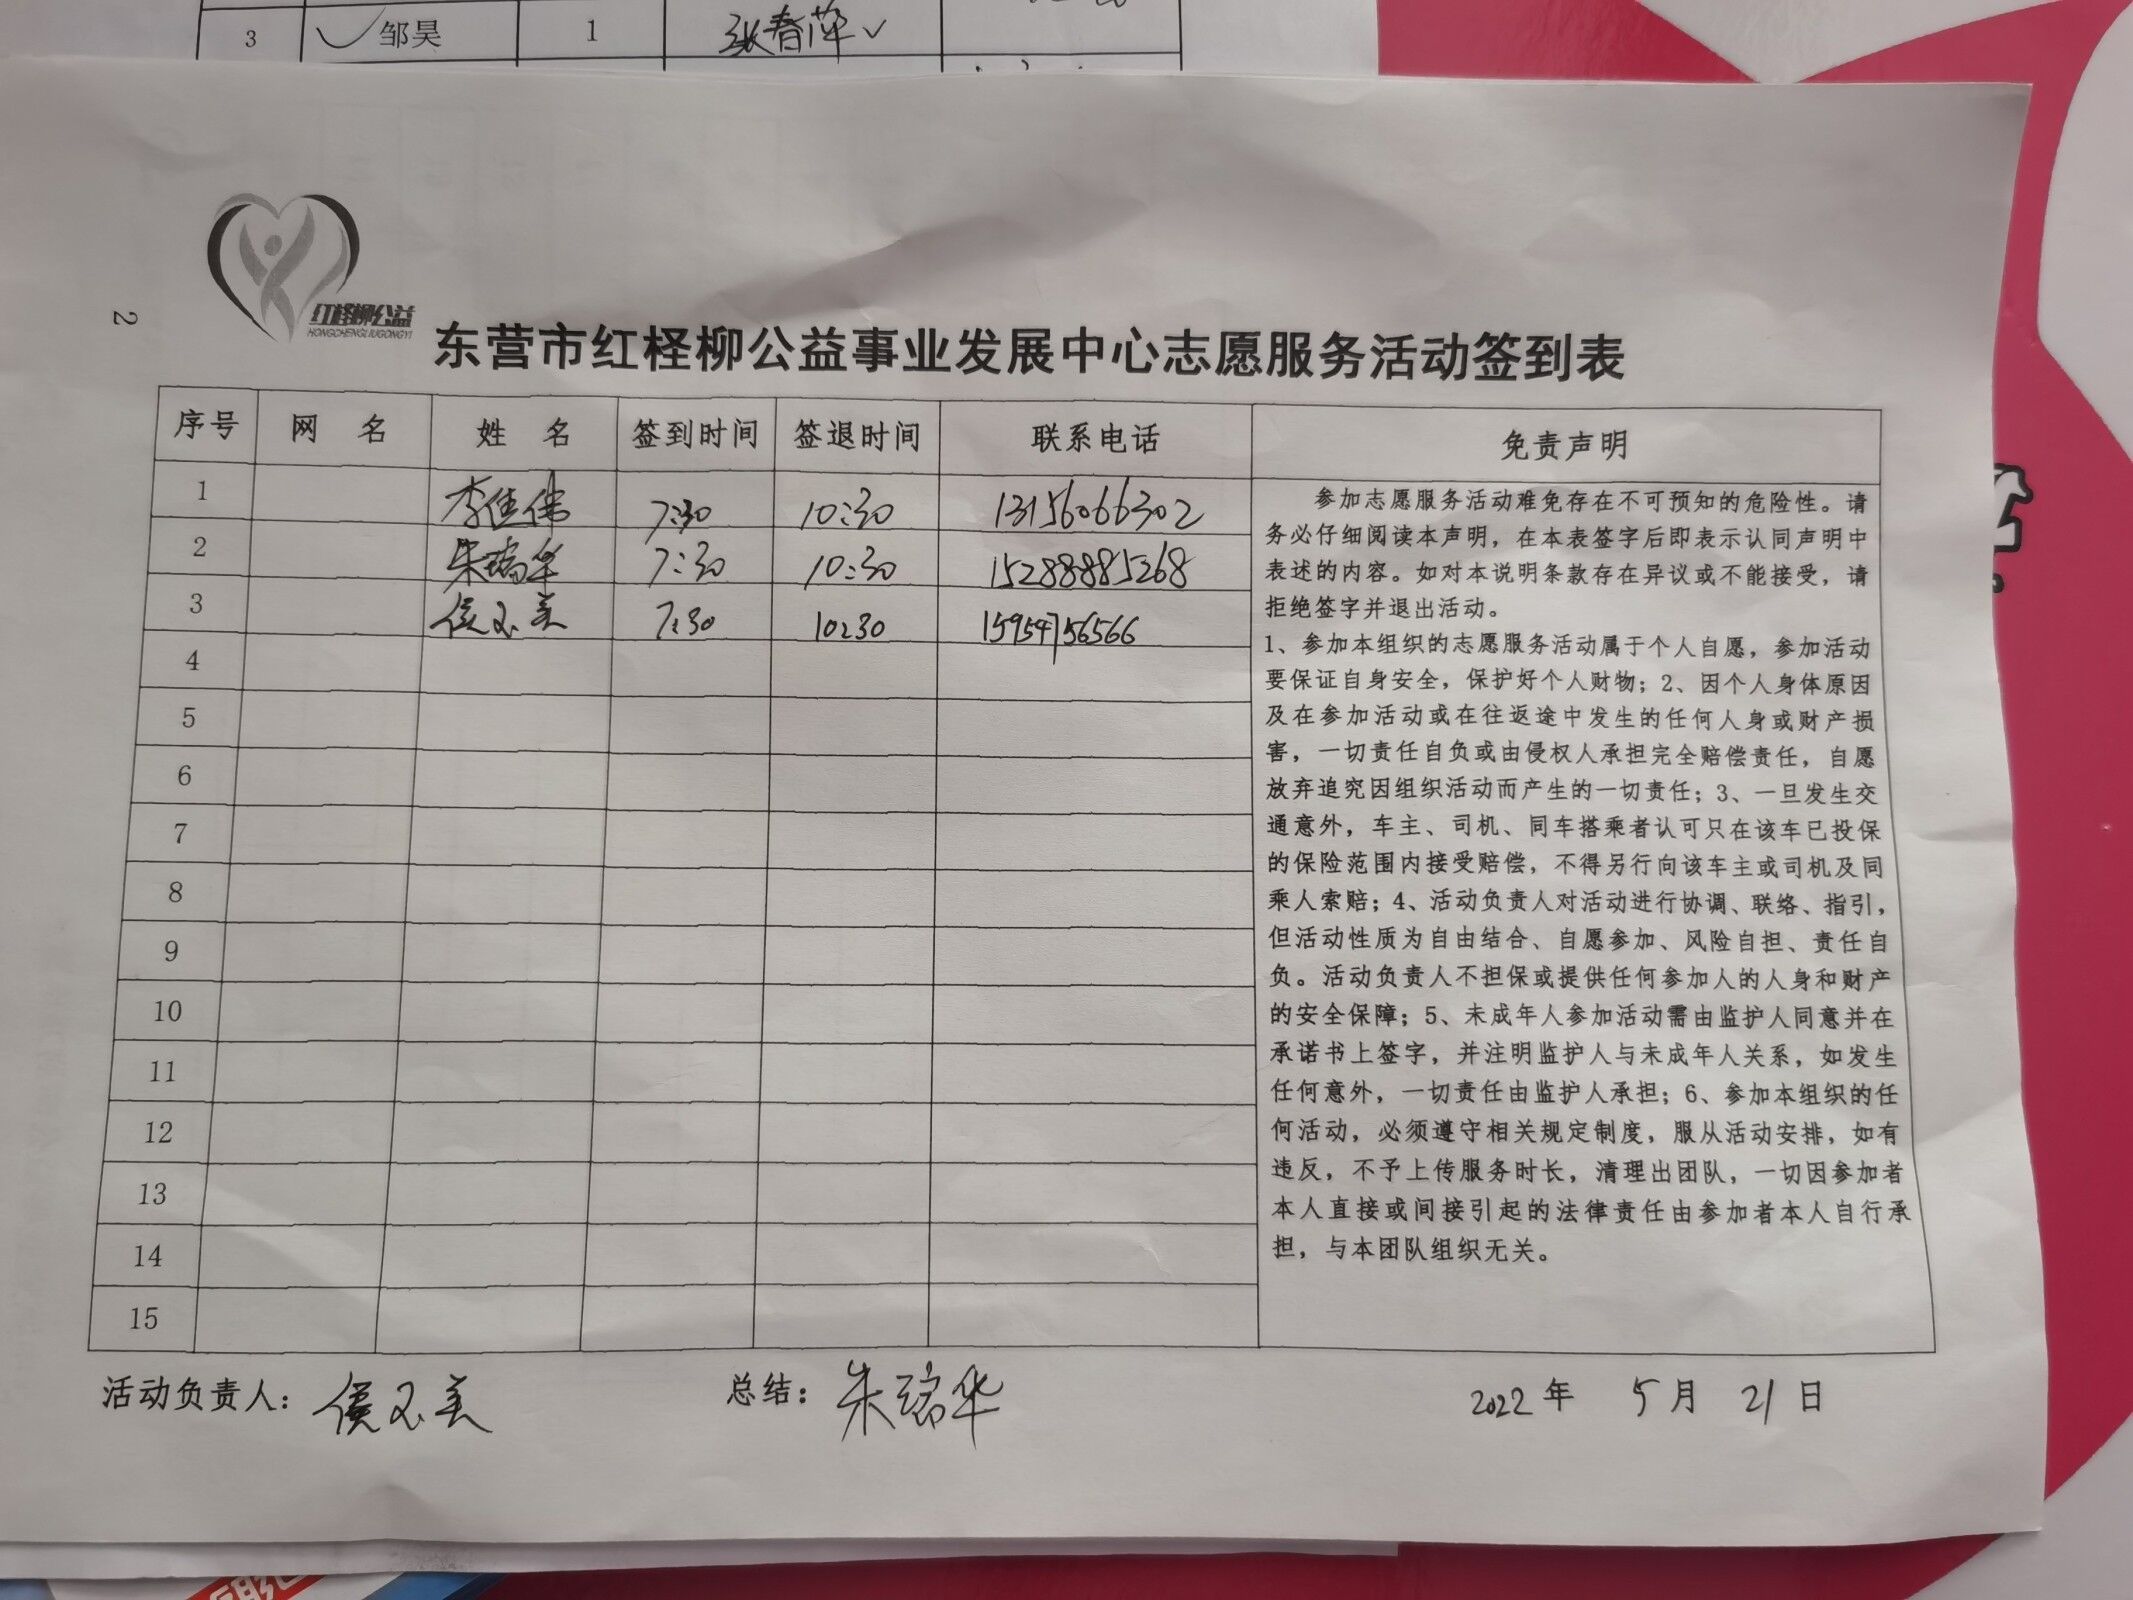 3 邹昊 1 张春萍
2
红柽柳公益
HONGCHENGLIUGONGYI
东营市红柽柳公益事业发展中心志愿服务活动签到表
序号 网 名 姓 名 签到时间 签退时间 联系电话 免责声明
1 李佳伟 7:30 10:30 13156066302
2 朱瑞华 7:30 10:30 15288885268
3 侯玉美 7:30 10:30 15954756566
4
5
6
7
8
9
10
11
12
13
14
15
参加志愿服务活动难免存在不可预知的危险性。请
务必仔细阅读本声明，在本表签字后即表示认同声明中
表述的内容。如对本说明条款存在异议或不能接受，请
拒绝签字并退出活动。
1、参加本组织的志愿服务活动属于个人自愿，参加活动
要保证自身安全，保护好个人财物；2、因个人身体原因
及在参加活动或在往返途中发生的任何人身或财产损
害，一切责任自负或由侵权人承担完全赔偿责任，自愿
放弃追究因组织活动而产生的一切责任；3、一旦发生交
通意外，车主、司机、同车搭乘者认可只在该车已投保
的保险范围内接受赔偿，不得另行向该车主或司机及同
乘人索赔；4、活动负责人对活动进行协调、联络、指引，
但活动性质为自由结合、自愿参加、风险自担、责任自
负。活动负责人不担保或提供任何参加人的人身和财产
的安全保障；5、未成年人参加活动需由监护人同意并在
承诺书上签字，并注明监护人与未成年人关系，如发生
任何意外，一切责任由监护人承担；6、参加本组织的任
何活动，必须遵守相关规定制度，服从活动安排，如有
违反，不予上传服务时长，清理出团队，一切因参加者
本人直接或间接引起的法律责任由参加者本人自行承
担，与本团队组织无关。
活动负责人：侯玉美 总结：朱瑞华 2022年 5月 21日